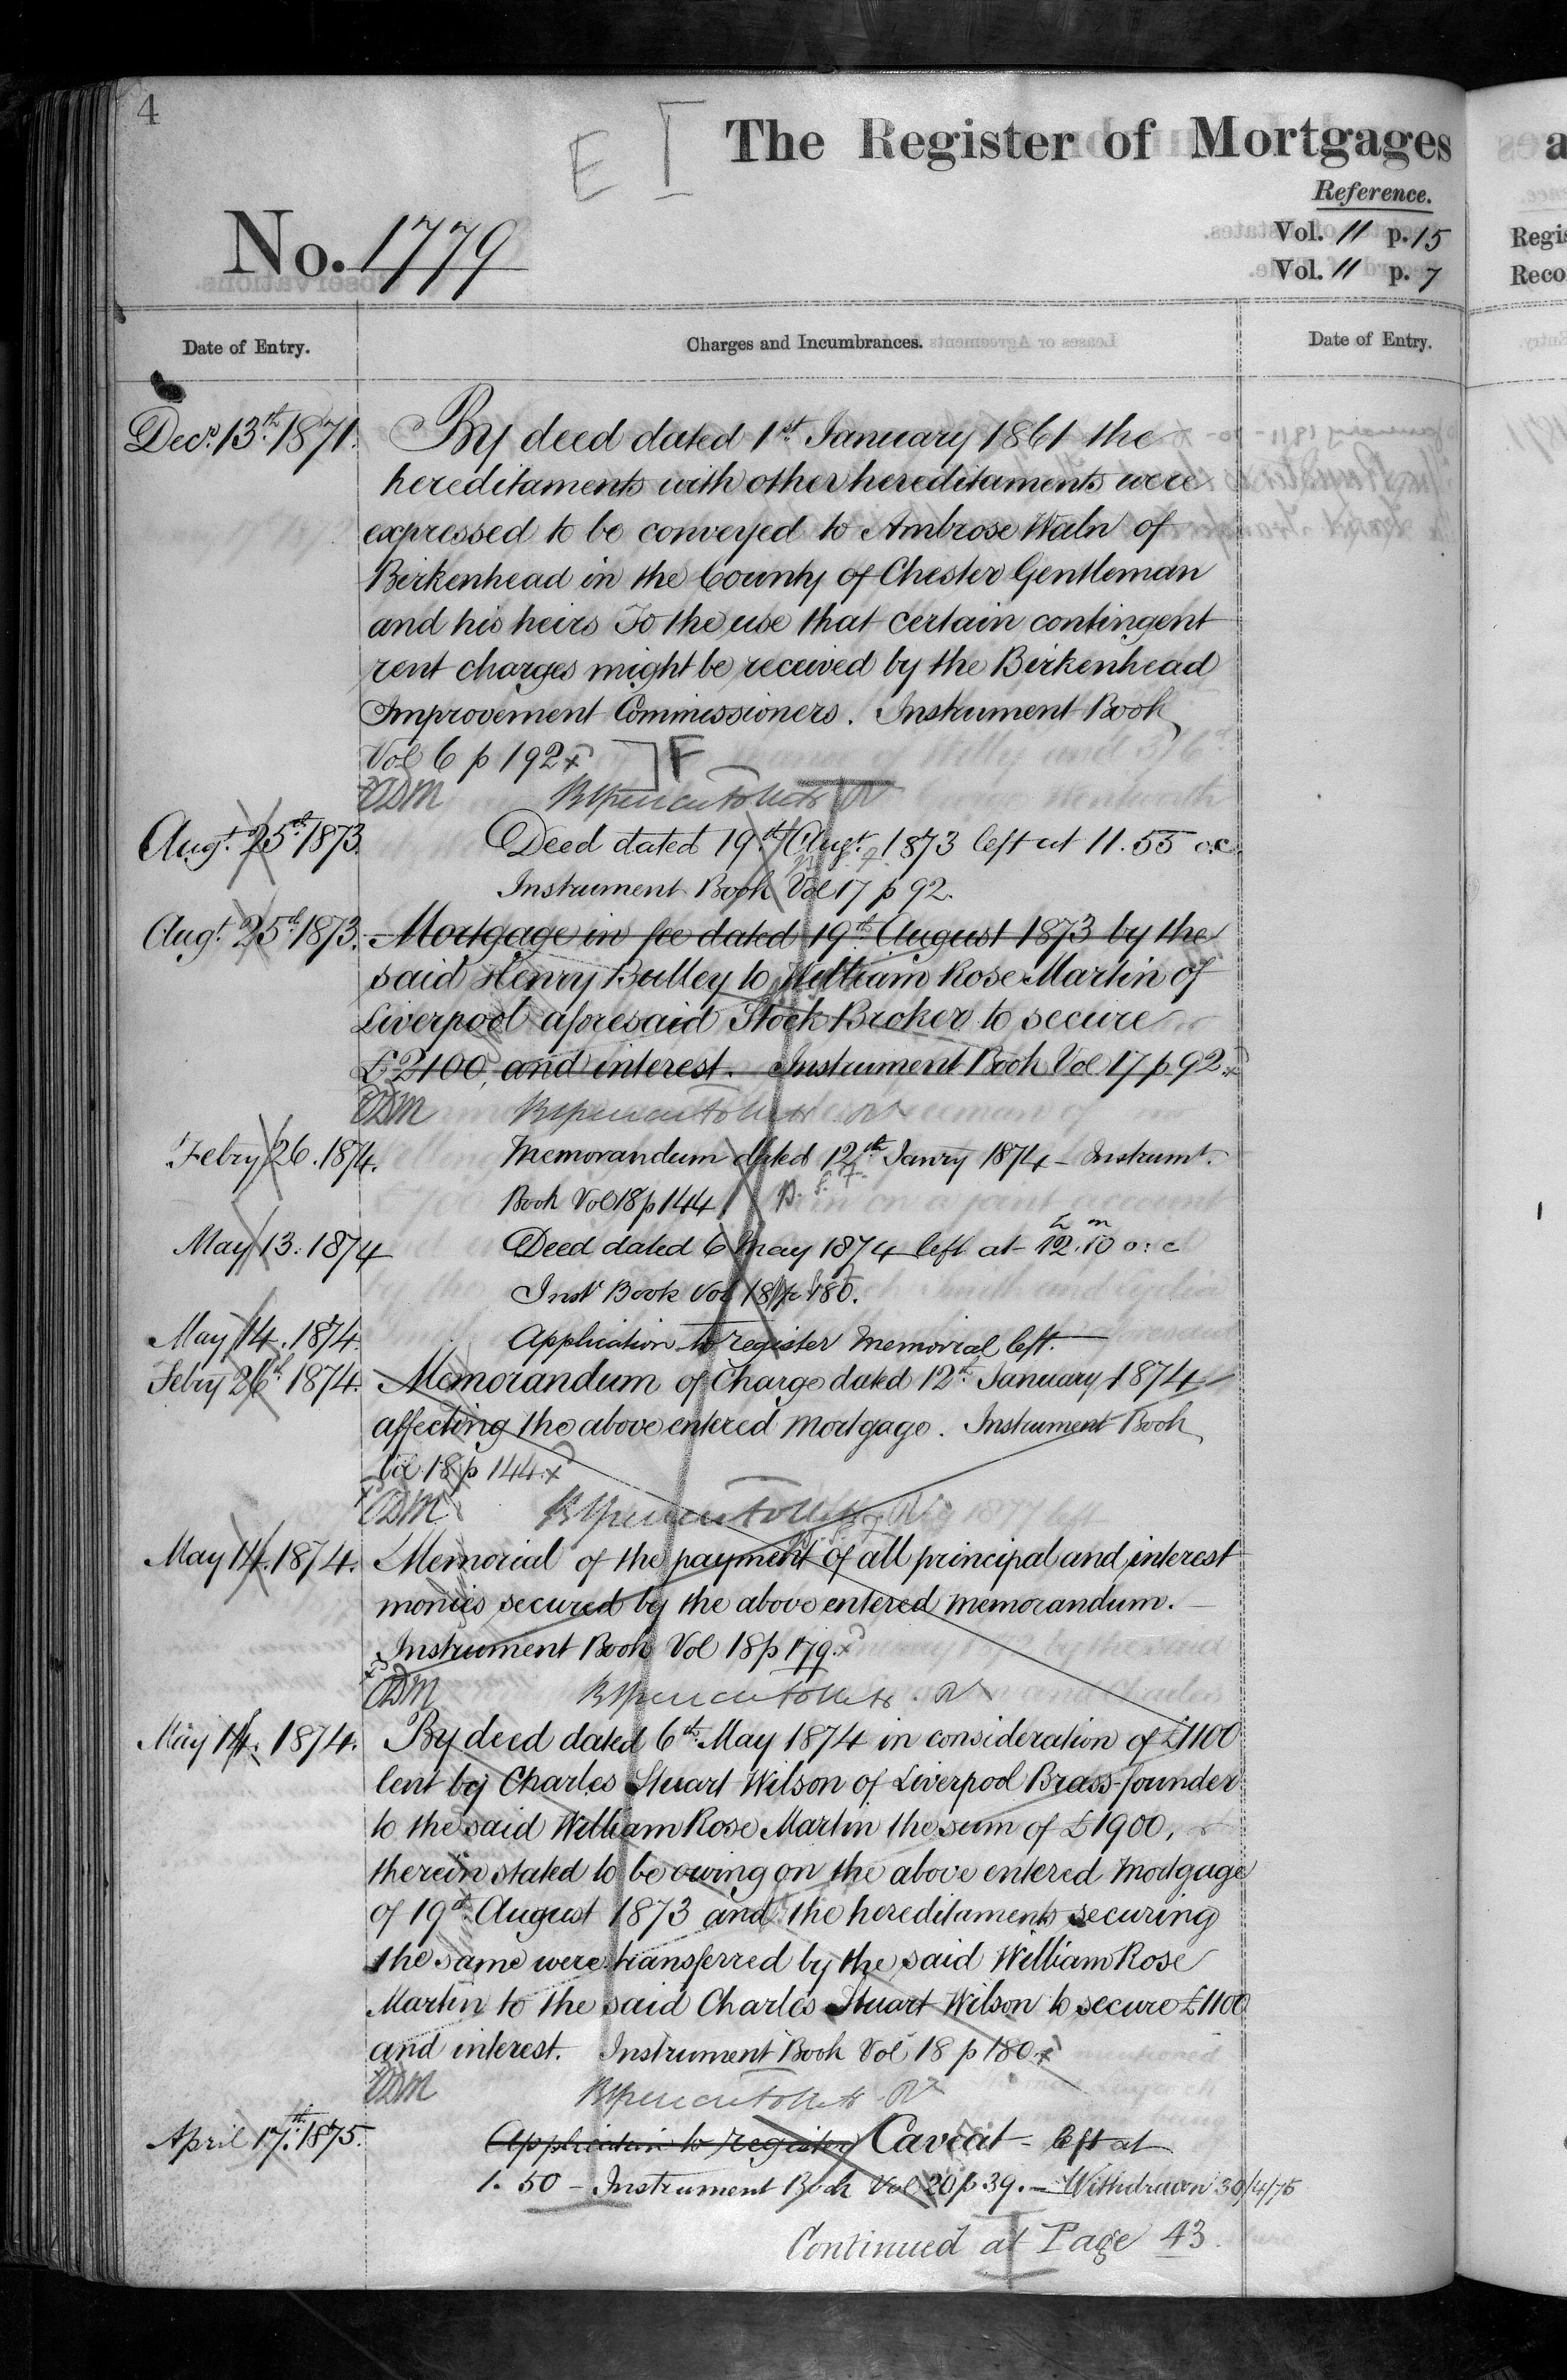 4
E I
The Register of Mortgages
Reference.
No. 1779
Vol. 11 p. 15
Vol. 11 p. 7
Regis
Reco
Date of Entry.
Charges and Incumbrances.
Date of Entry.
Decr. 13th 1871. By deed dated 1st January 1861 the
hereditaments with other hereditaments were
expressed to be conveyed to Ambrose Waln of
Birkenhead in the County of Chester Gentleman
and his heirs To the use that certain contingent
rent charges might be received by the Birkenhead
Improvement Commissioners. Instrument Book
Vol 6 p 192 F
Augt. 25th 1873. Deed dated 19th Augt. 1873 left at 11.55 o.c.
Instrument Book Vol 17 p 92.
Augt. 25th 1873. Mortgage in fee dated 19th August 1873 by the
said Henry Bulley to William Rose Martin of
Liverpool aforesaid Stock Broker to secure
£2100 and interest. Instrument Book Vol 17 p 92
Febry 26. 1874. Memorandum dated 12th Janry 1874 - Instrumt.
Book Vol 18 p 144
May 13. 1874 Deed dated 6 May 1874 left at 12h.10m o:c
Inst Book Vol 18 p 180.
May 14. 1874. Application to register Memorial left.
Febry 26th 1874. Memorandum of Charge dated 12th January 1874
affecting the above entered mortgage. Instrument Book
Vol 18 p 144
May 14. 1874. Memorial of the payment of all principal and interest
monies secured by the above entered memorandum.
Instrument Book Vol 18 p 179.
May 14. 1874. By deed dated 6th May 1874 in consideration of £1100
lent by Charles Stuart Wilson of Liverpool Brass-founder
to the said William Rose Martin the sum of £1900,
therein stated to be owing on the above entered mortgage
of 19th August 1873 and the hereditaments securing
the same were transferred by the said William Rose
Martin to the said Charles Stuart Wilson to secure £1100
and interest. Instrument Book Vol 18 p 180
April 17th 1875. Application to register Caveat - left at
1.50 - Instrument Book Vol 20 p 39. - Withdrawn 30/4/75
Continued at Page 43